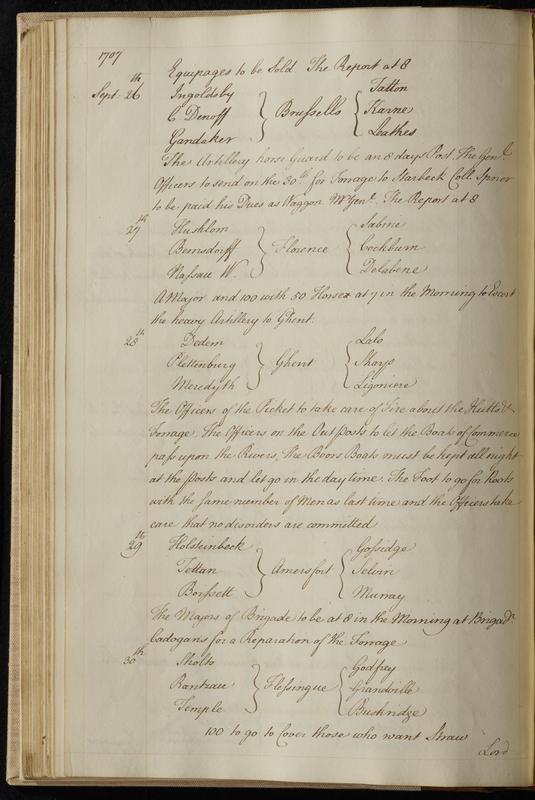 1707
Equipages to be Sold. The Report at 8
Sept: 26th Ingoldsby } { Tatton
C. Denoff } Brussells { Karne
Gandaker } { Leathes
The Artillery horse Guard to be an 8 days Post. The Genl.
Officers to send on the 30th for Forrage to Starbeck Coll. Spnor
to be paid his Dues as Waggon Mr Genl. The Report at 8
27th Hushlom } { Sabine
Bernsdorff } Florence { Cockburn
Nassau W. } { Delabene
A Major and 100 with 50 Horses at 7 in the Morning to Escort
the heavy Artillery to Ghent.
28th Dedem } { Lalo
Plettenburg } Ghent { Sharp
Meredyth } { Ligoniere
The Officers of the Picket to take care of Fire about the Hutts &
Forrage. The Officers on the Out posts to let the Boats of Commerce
pass upon the Rivers, the Boors Boats must be kept all night
at the posts and let go in the day time. The Foot to go for Roots
with the same number of Men as last time and the Officers take
care that no disorders are committed
29th Holsteinbeck } { Gossidge
Tettan } Amersfort { Selwin
Boissett } { Murray
The Majors of Brigade to be at 8 in the Morning at Brigadr.
Cadogans for a Reparation of the Forrage
30th Sholto } { Godfrey
Rantzau } Flessingue { Grandville
Temple } { Bushridge
100 to go to Cover those who want Straw
Lord